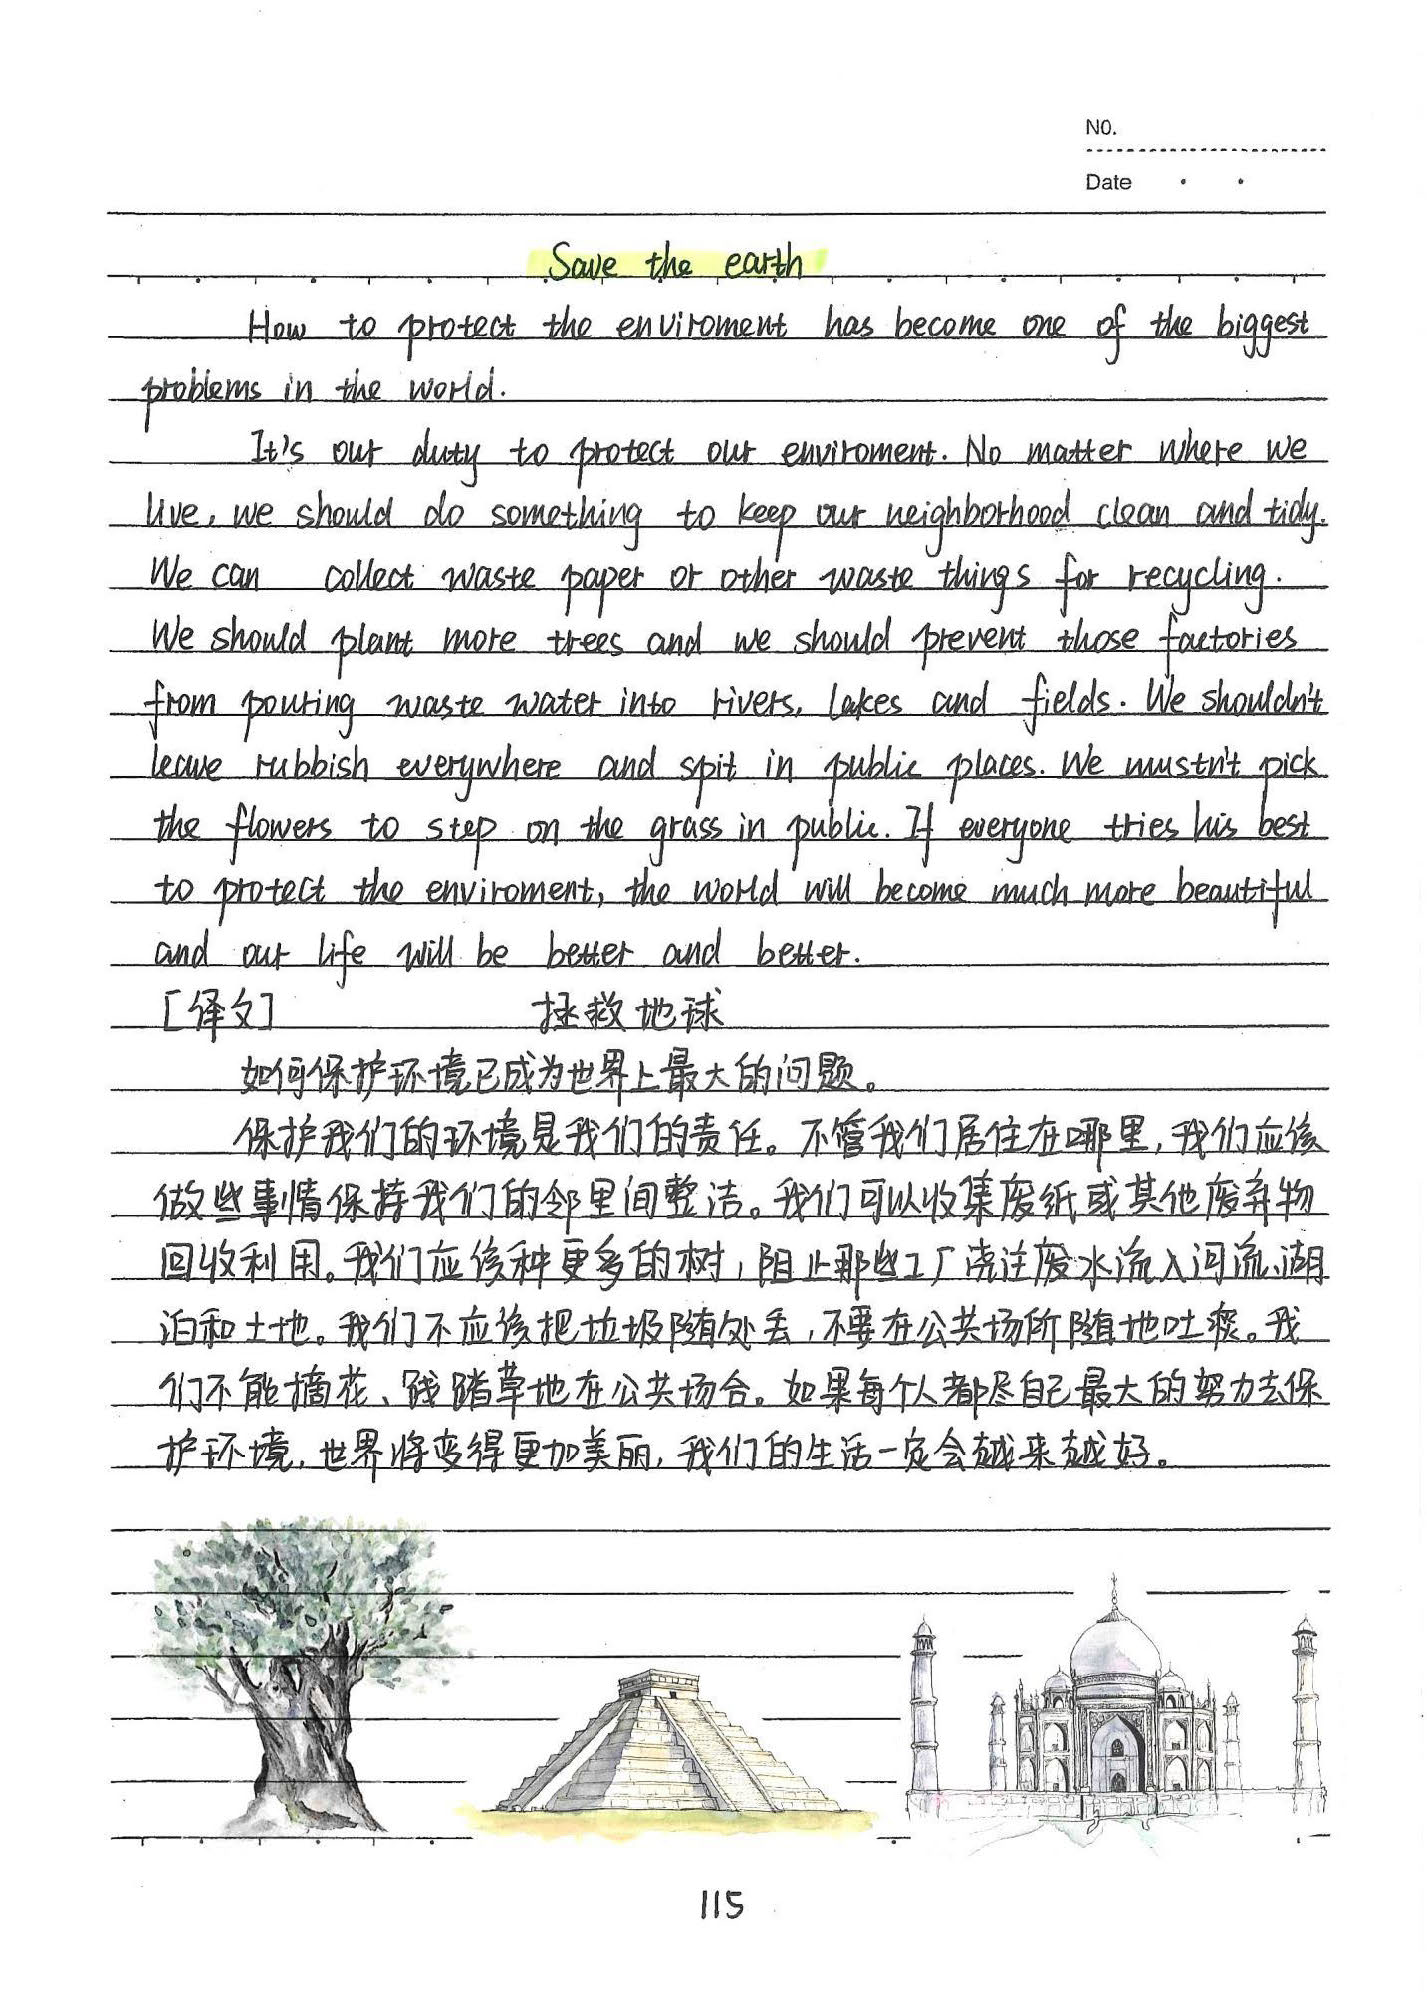 NO.
Date
Save the earth
How to protect the enviroment has become one of the biggest
problems in the world.
It's our duty to protect our enviroment. No matter where we
live, we should do something to keep our neighborhood clean and tidy.
We can collect waste paper or other waste things for recycling.
We should plant more trees and we should prevent those factories
from pouring waste water into rivers, lakes and fields. We shouldn't
leave rubbish everywhere and spit in public places. We mustn't pick
the flowers to step on the grass in public. If everyone tries his best
to protect the enviroment, the world will become much more beautiful
and our life will be better and better.
[译文] 拯救地球
如何保护环境已成为世界上最大的问题。
保护我们的环境是我们的责任。不管我们居住在哪里,我们应该
做些事情保持我们的邻里间整洁。我们可以收集废纸或其他废弃物
回收利用。我们应该种更多的树,阻止那些工厂浇注废水流入河流、湖
泊和土地。我们不应该把垃圾随处丢,不要在公共场所随地吐痰。我
们不能摘花、践踏草地在公共场合。如果每个人都尽自己最大的努力去保
护环境,世界将变得更加美丽,我们的生活一定会越来越好。
115